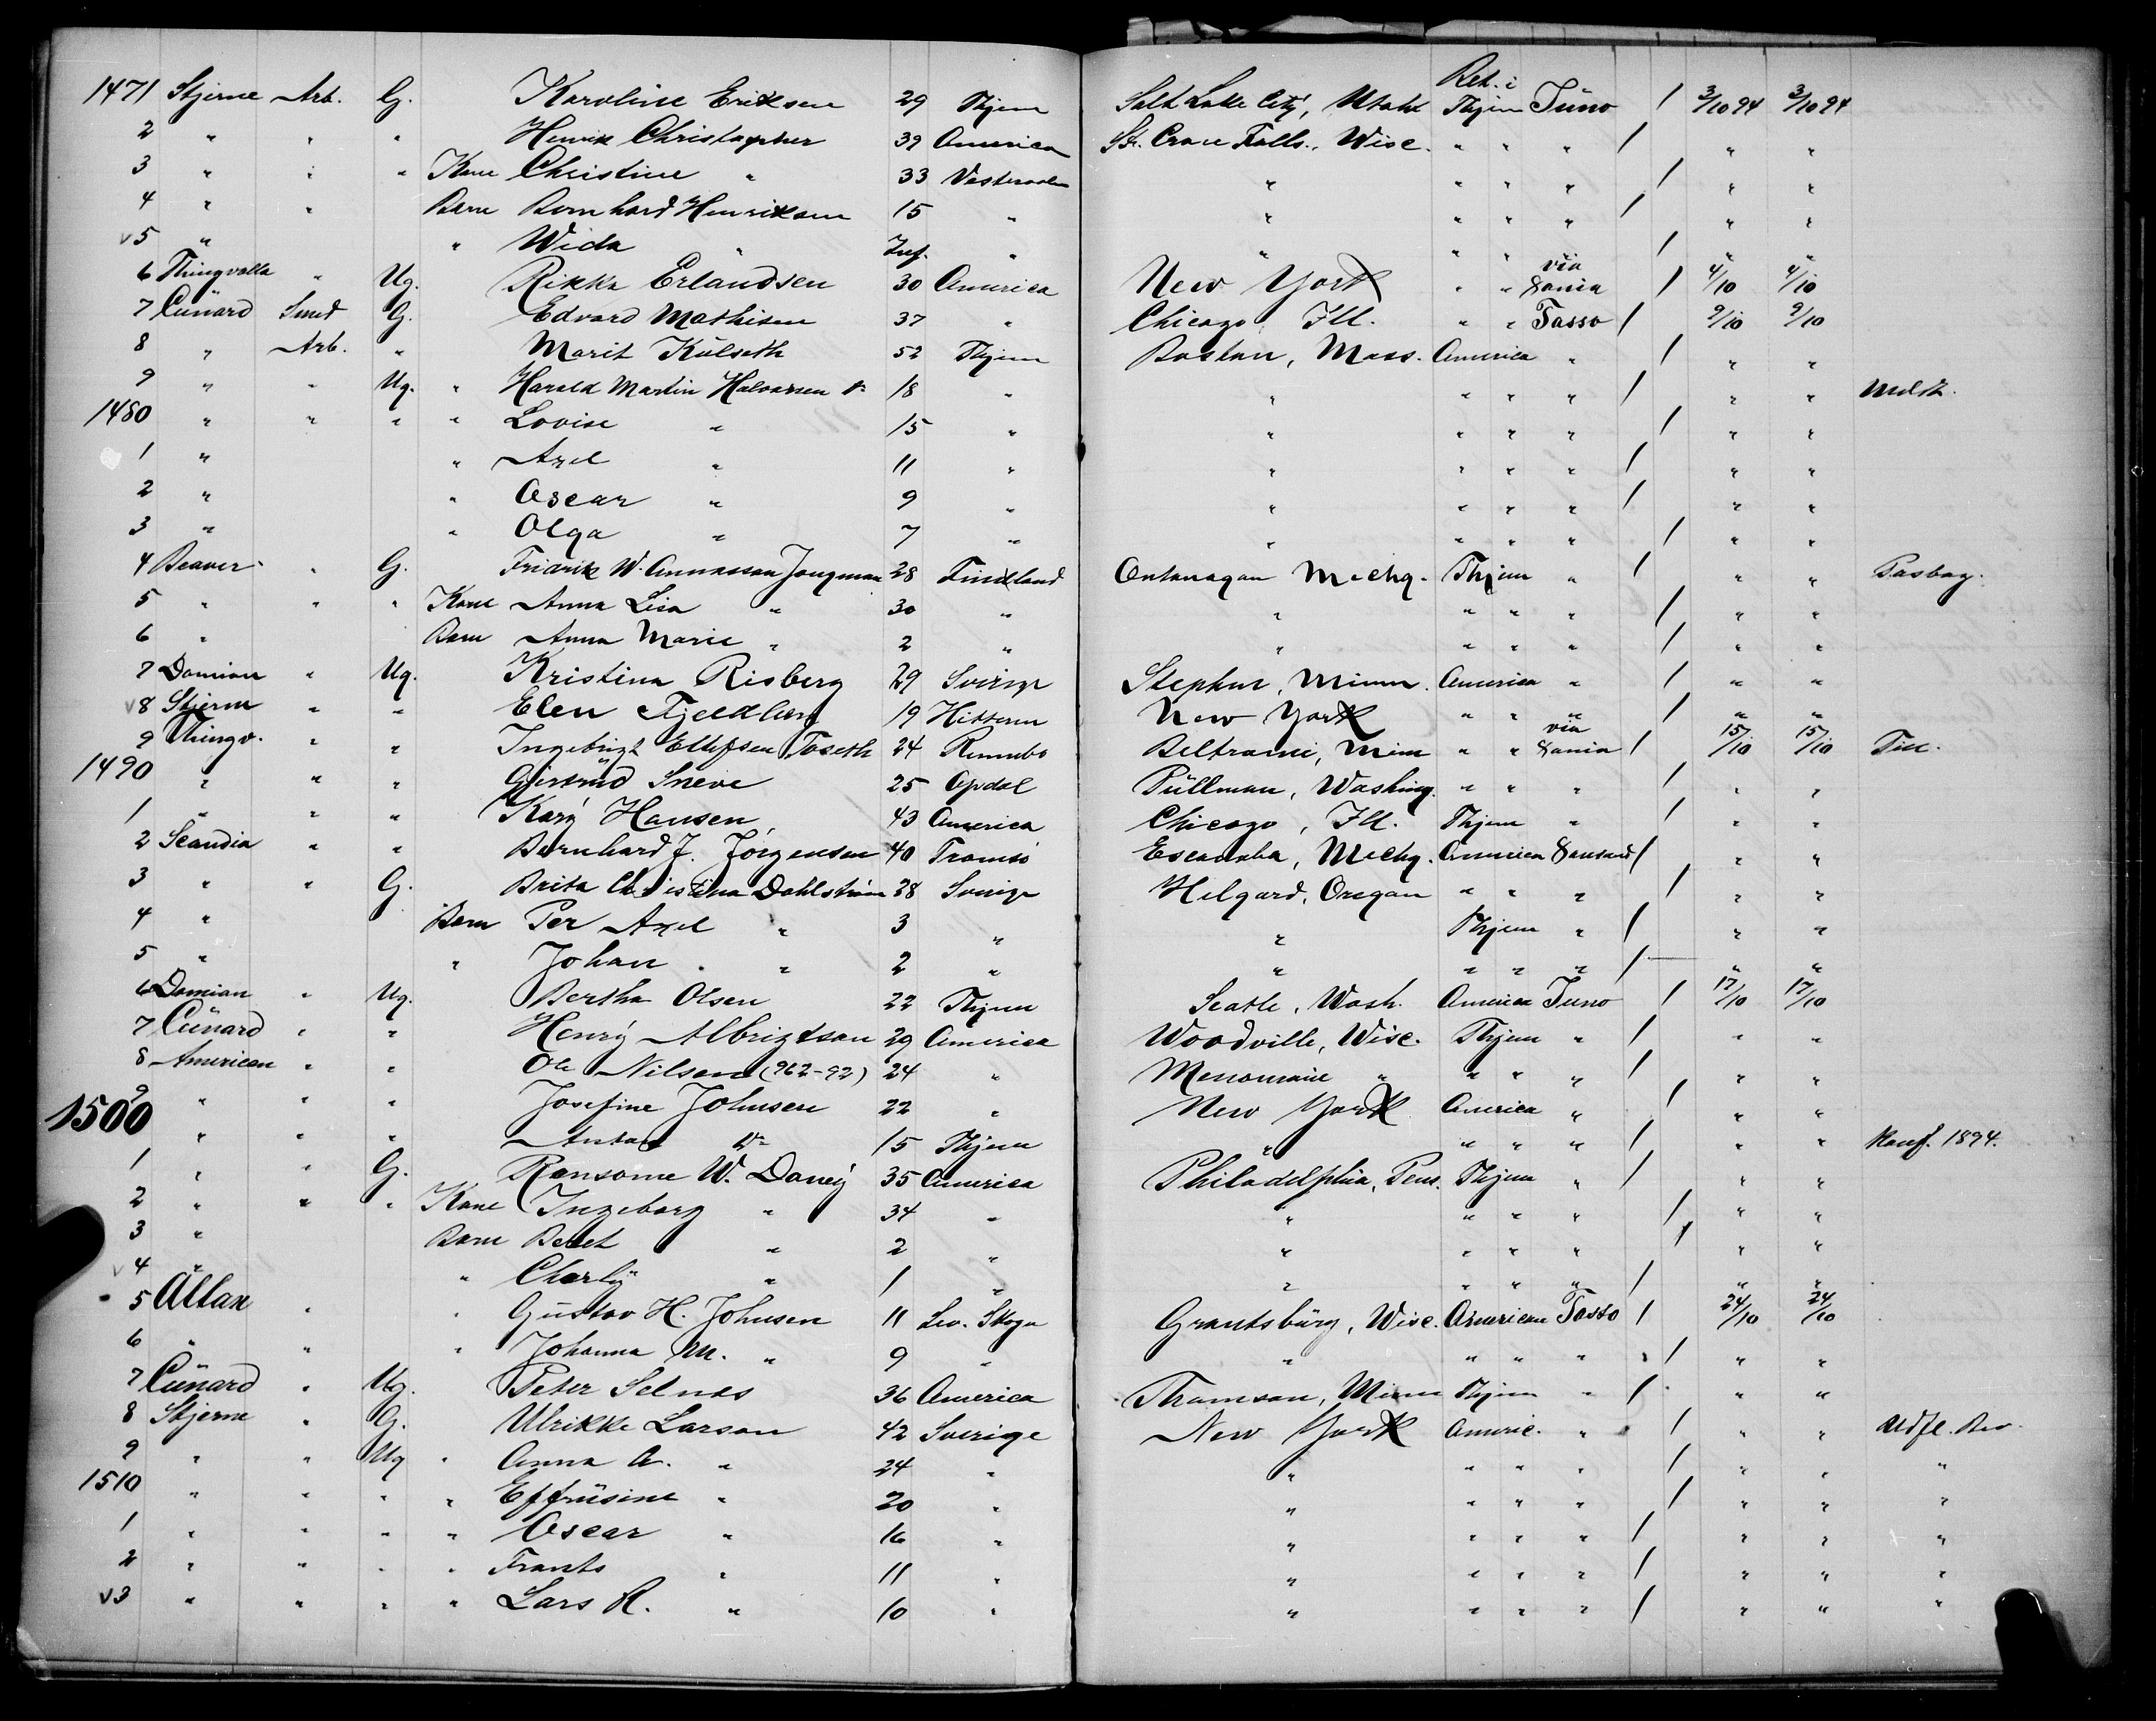 1471 Stjerne Arb. G. Karoline Eriksen 29 Thjem Salt Lake City, Utah Ret. i Thjem Juno / 3/10 94 3/10 94
2 " " " Henrik Christopher 39 America St. Croae Falls., Wisc. " " " / " "
3 " " " Kone Christine " 33 Vesteraalen " " " " / " "
4 " " Barn Bernhard Henriksen 15 " " " " " / " "
v5 " " Wida " Inf. " " " " " / " "
6 Thingvalla " Ug. Rikke Erlandsen 30 America New York " " via Dania / 4/10 4/10
7 Cunard Smed G. Edvard Mathisen 37 " Chicago Ill. " " Tasso / 9/10 9/10
8 " Arb. " Marit Kulseth 52 Thjem Boston, Mass. America " / " "
9 " " Ug. " Harald Martin Halvorsen " 18 " " " " " / " " Meldt.
1480 " " " " Lovise " 15 " " " " " / " "
1 " " Axel " 11 " " " " " / " "
2 " " Oscar " 9 " " " " " / " "
3 " " Olga " 7 " " " " " / " "
4 Beaver " G. Fridrik W. Annasson Jougman 28 Finland Ontonagan Mechg. Thjem " / " "
5 " " " Kone Anna Lisa " 30 " " " " " / " "
6 " Barn Anna Marie " 2 " " " " " / " "
7 Domion " Ug. Kristina Risberg 29 Sverige Stephen, Minn. America " / " "
v8 Stjern " " Elen Fjeldberg 19 Hitteren New York " " " / " "
9 Thingv. " " Ingebrigt Ellefsen Toseth 24 Rennebo Beltrami, Minn " " via Dania / 15/10 15/10
1490 " " " Gjertrud Sneve 25 Opdal Pullman, Washing. " " " / " "
1 " " " Kary Hansen 43 America Chicago, Ill. Thjem " / " "
2 Scandia " " Bernhard J. Jörgensen 40 Tromsö Escanaba, Mechg. America / " "
3 " " G. Brita Christina Dahlström 28 Sverige Hilgard, Oregon " " " / " "
4 " Barn Per Axel " 3 " " Thjem " / " "
5 " " Johan " 2 " " " " " / " "
6 Domian " Ug. Bertha Olsen 22 Thjem Seatle, Wash. America Juno / 17/10 17/10
7 Cunard " " Henry Albrigtson 29 America Woodville, Wisc. Thjem " / " "
8 American " " Ole Nilsen (962-92) 24 " Menomonie " " " " / " "
9 " " " Josefine Johnsen 22 " New York America " / " "
1500 " " " Anton " 15 Thjem " " " " / " " Konf. 1894.
1 " " G. Ransome W. Daney 35 America Philadelphia, Pens. Thjem " / " "
2 " " " Kone Ingeborg " 34 " " " " " / " "
3 " Barn Beret " 2 " " " " " / " "
v4 " " Charly " 1 " " " " " / " "
5 Allan " " Gustav H. Johnsen 11 Lev. Skogn Grantsburg, Wisc. American Tasso / 24/10 24/10
6 " " " Johanna M. " 9 " " " " " / " "
7 Cunard " Ug. Peter Selnes 36 America Thomson, Minn Thjem " / " "
8 Stjerne " G. Ulrikke Larson 42 Sverige New York Americ. " / " " Udfl. Bev.
9 " " Ug " Anna A. " 24 " " " " " / " " "
1510 " " " " Effrusine " 20 " " " " " / " " "
1 " " " " Oscar " 16 " " " " " / " " "
2 " " " " Frants " 11 " " " " " / " " "
v3 " " " " Lars R. " 10 " " " " " / " " "